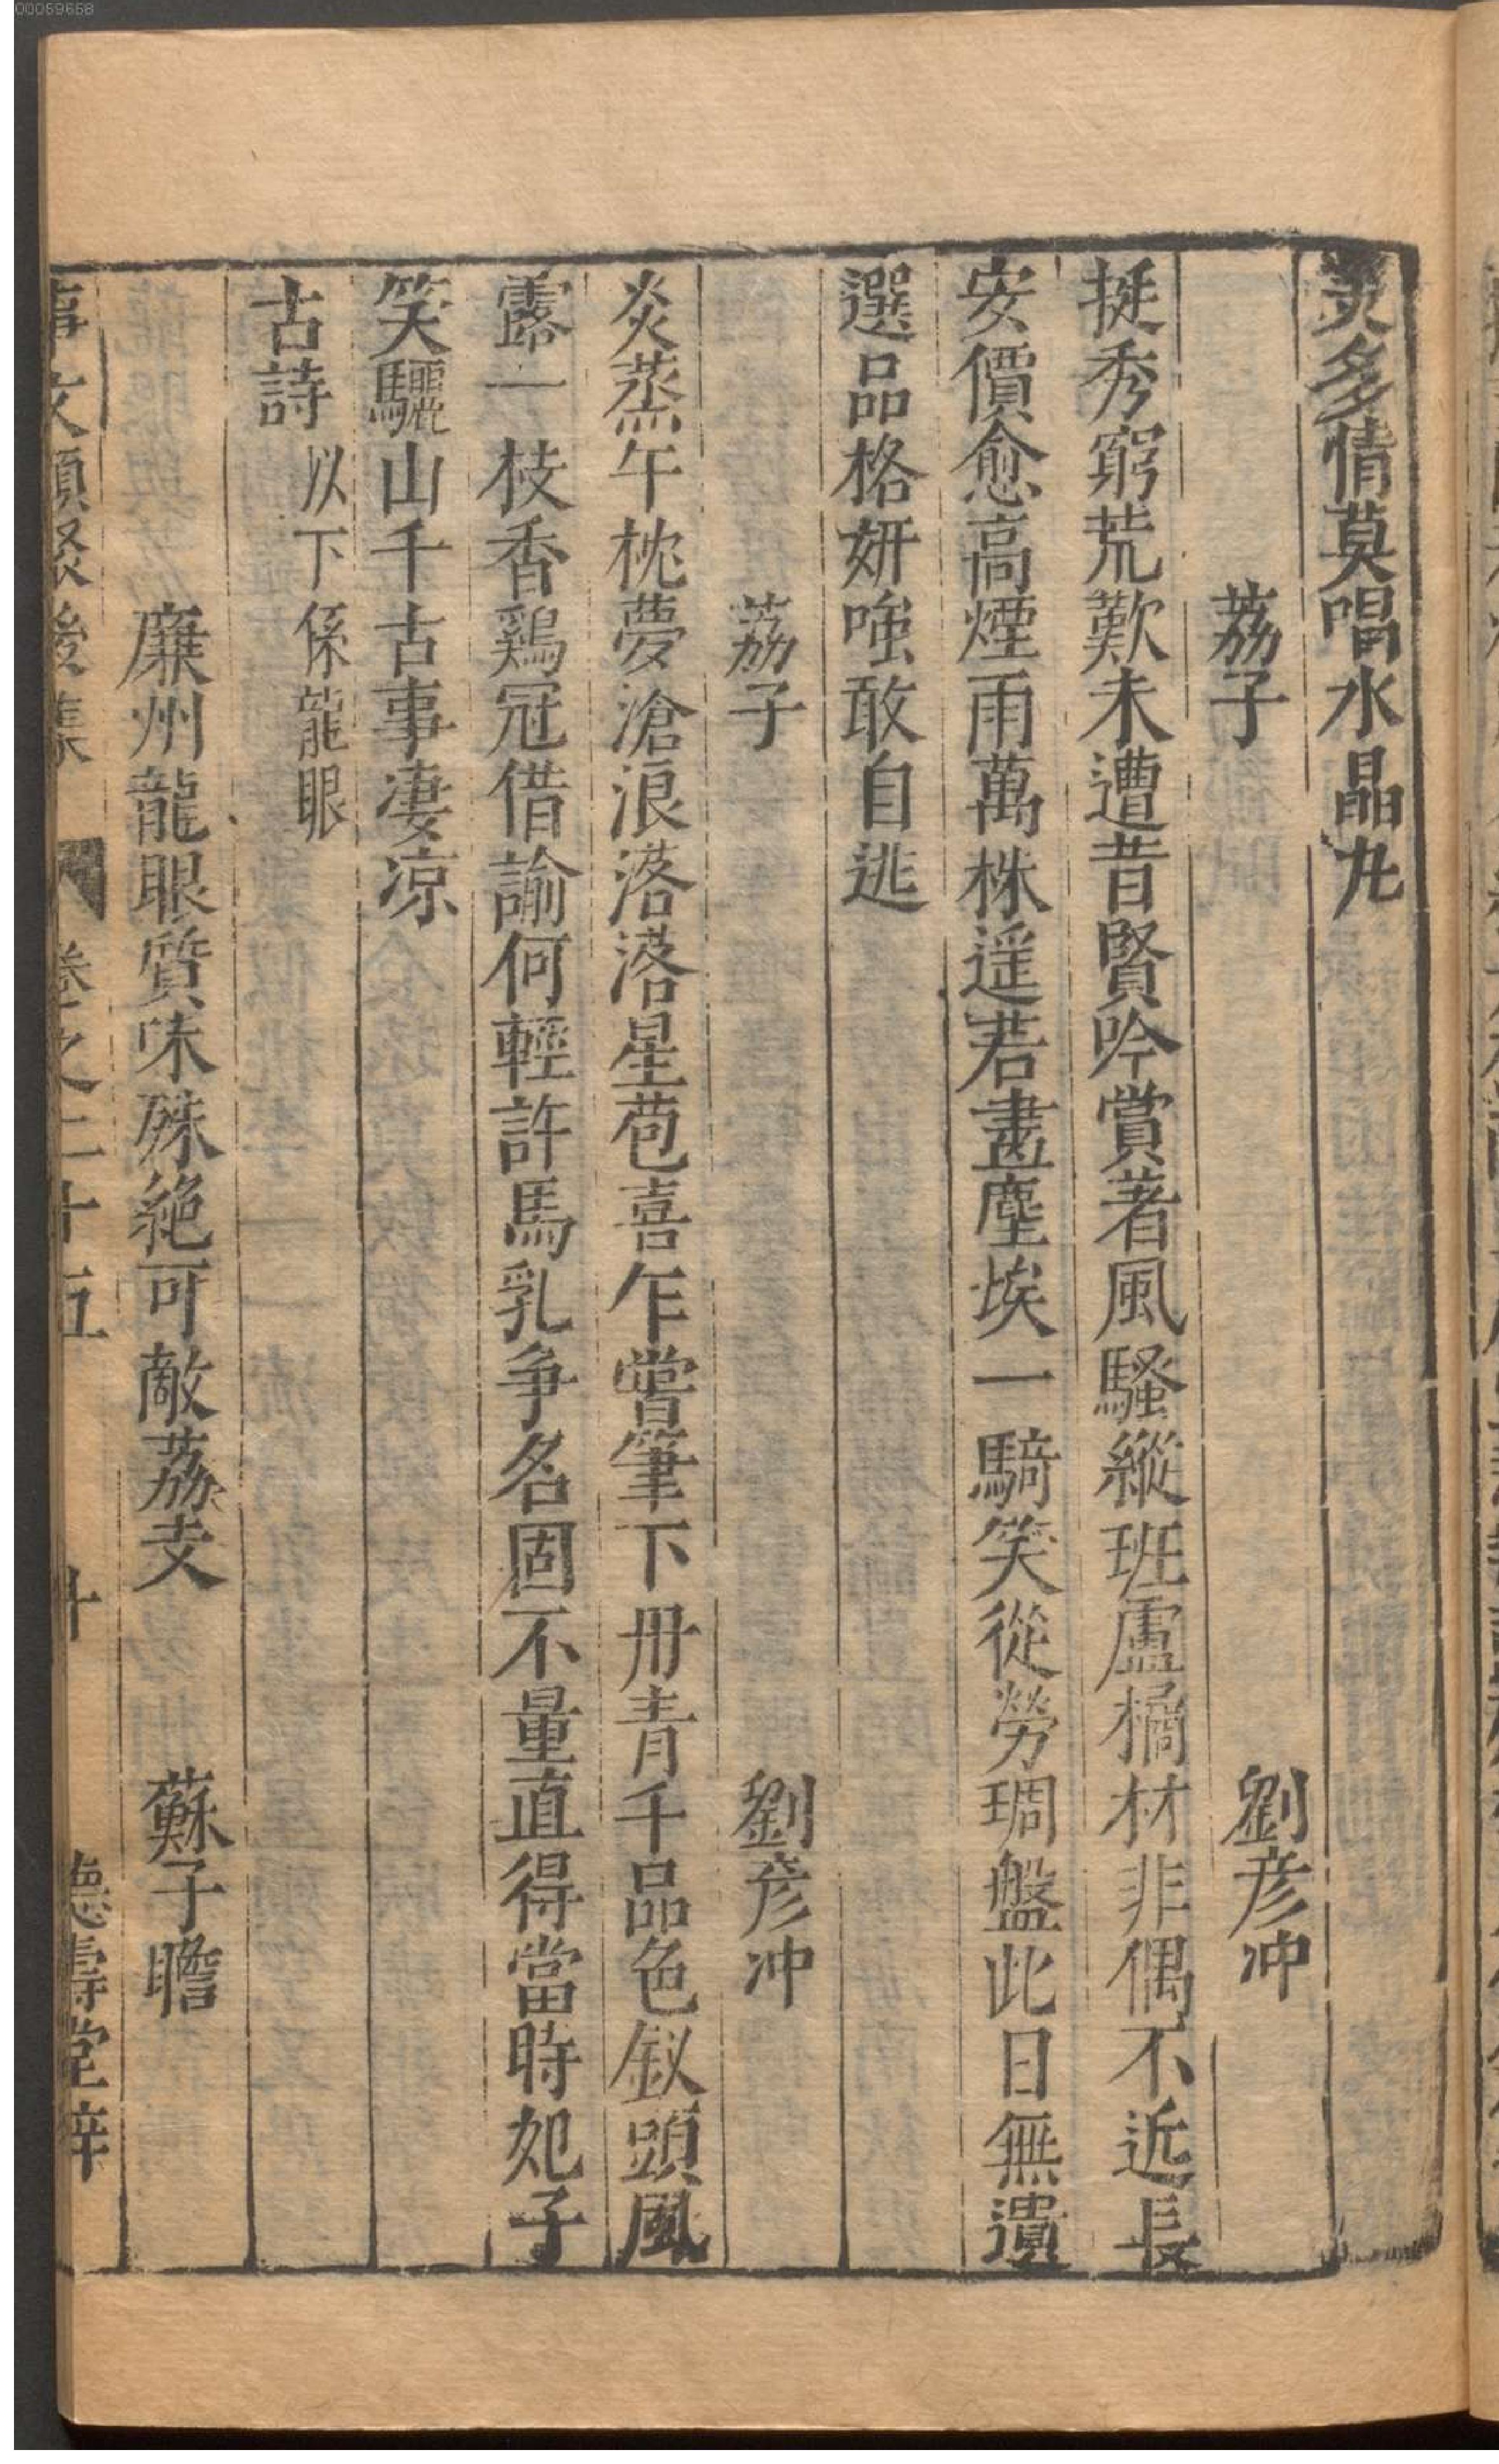 00059658
炙多情莫唱水晶丸
荔子　劉彥冲
挺秀窮荒歎未遭昔賢吟賞著風騷縱班盧橘材非偶不近長
安價愈高煙雨萬株遥若畫塵埃一騎笑從勞琱盤此日無遺
選品格妍嗤敢自逃
荔子　劉彥冲
炎蒸午枕夢滄浪落落星苞喜乍嘗筆下丹青千品色釵頭風
露一枝香鷄冠借諭何輕許馬乳争名固不量直得當時妃子
笑驪山千古事凄凉
古詩　以下係龍眼
廉州龍眼質味殊絶可敵荔支　蘇子瞻
事文類聚後集　卷之二十五　十　德壽堂梓